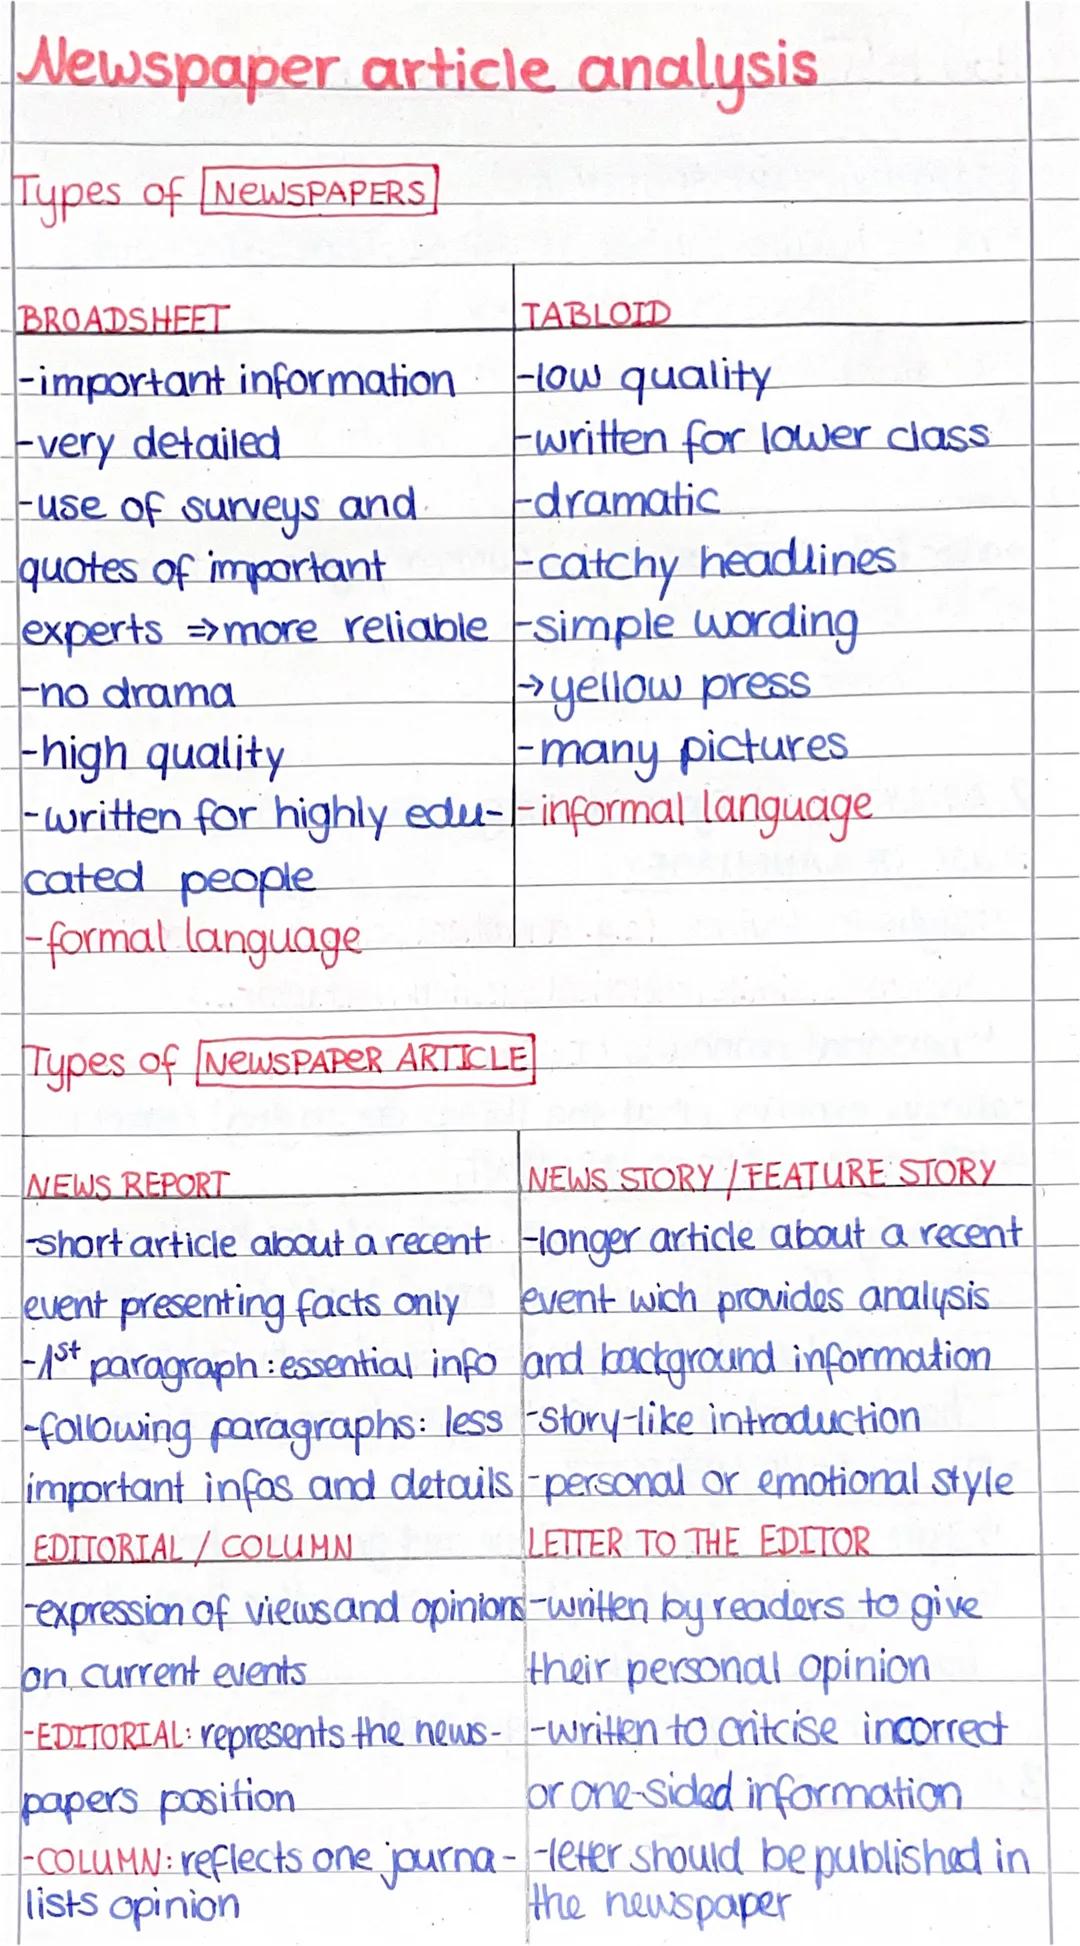 Newspaper article analysis
Types of NEWSPAPERS
BROADSHEET
-important information
-very detailed
-use of surveys and
quotes of important
experts ⇒more reliable
-no drama
-high quality
-written for highly edu-
cated people
-formal language
TABLOID
-low quality
-written for lower class
-dramatic
-catchy headlines
-simple wording
→yellow press
-many pictures
-informal language
Types of NEWSPAPER ARTICLE
NEWS REPORT
-short article about a recent
event presenting facts only
-1st paragraph: essential info
-following paragraphs: less
important infos and details
NEWS STORY / FEATURE STORY
-longer article about a recent
event wich provides analysis
and background information
-story-like introduction
-personal or emotional style
EDITORIAL / COLUMN
-expression of views and opinions
on current events
-EDITORIAL: represents the news-
papers position
-COLUMN: reflects one journa-
lists opinion
LETTER TO THE EDITOR
-written by readers to give
their personal opinion
-written to critcise incorrect
or one-sided information
-letter should be published in
the newspaper